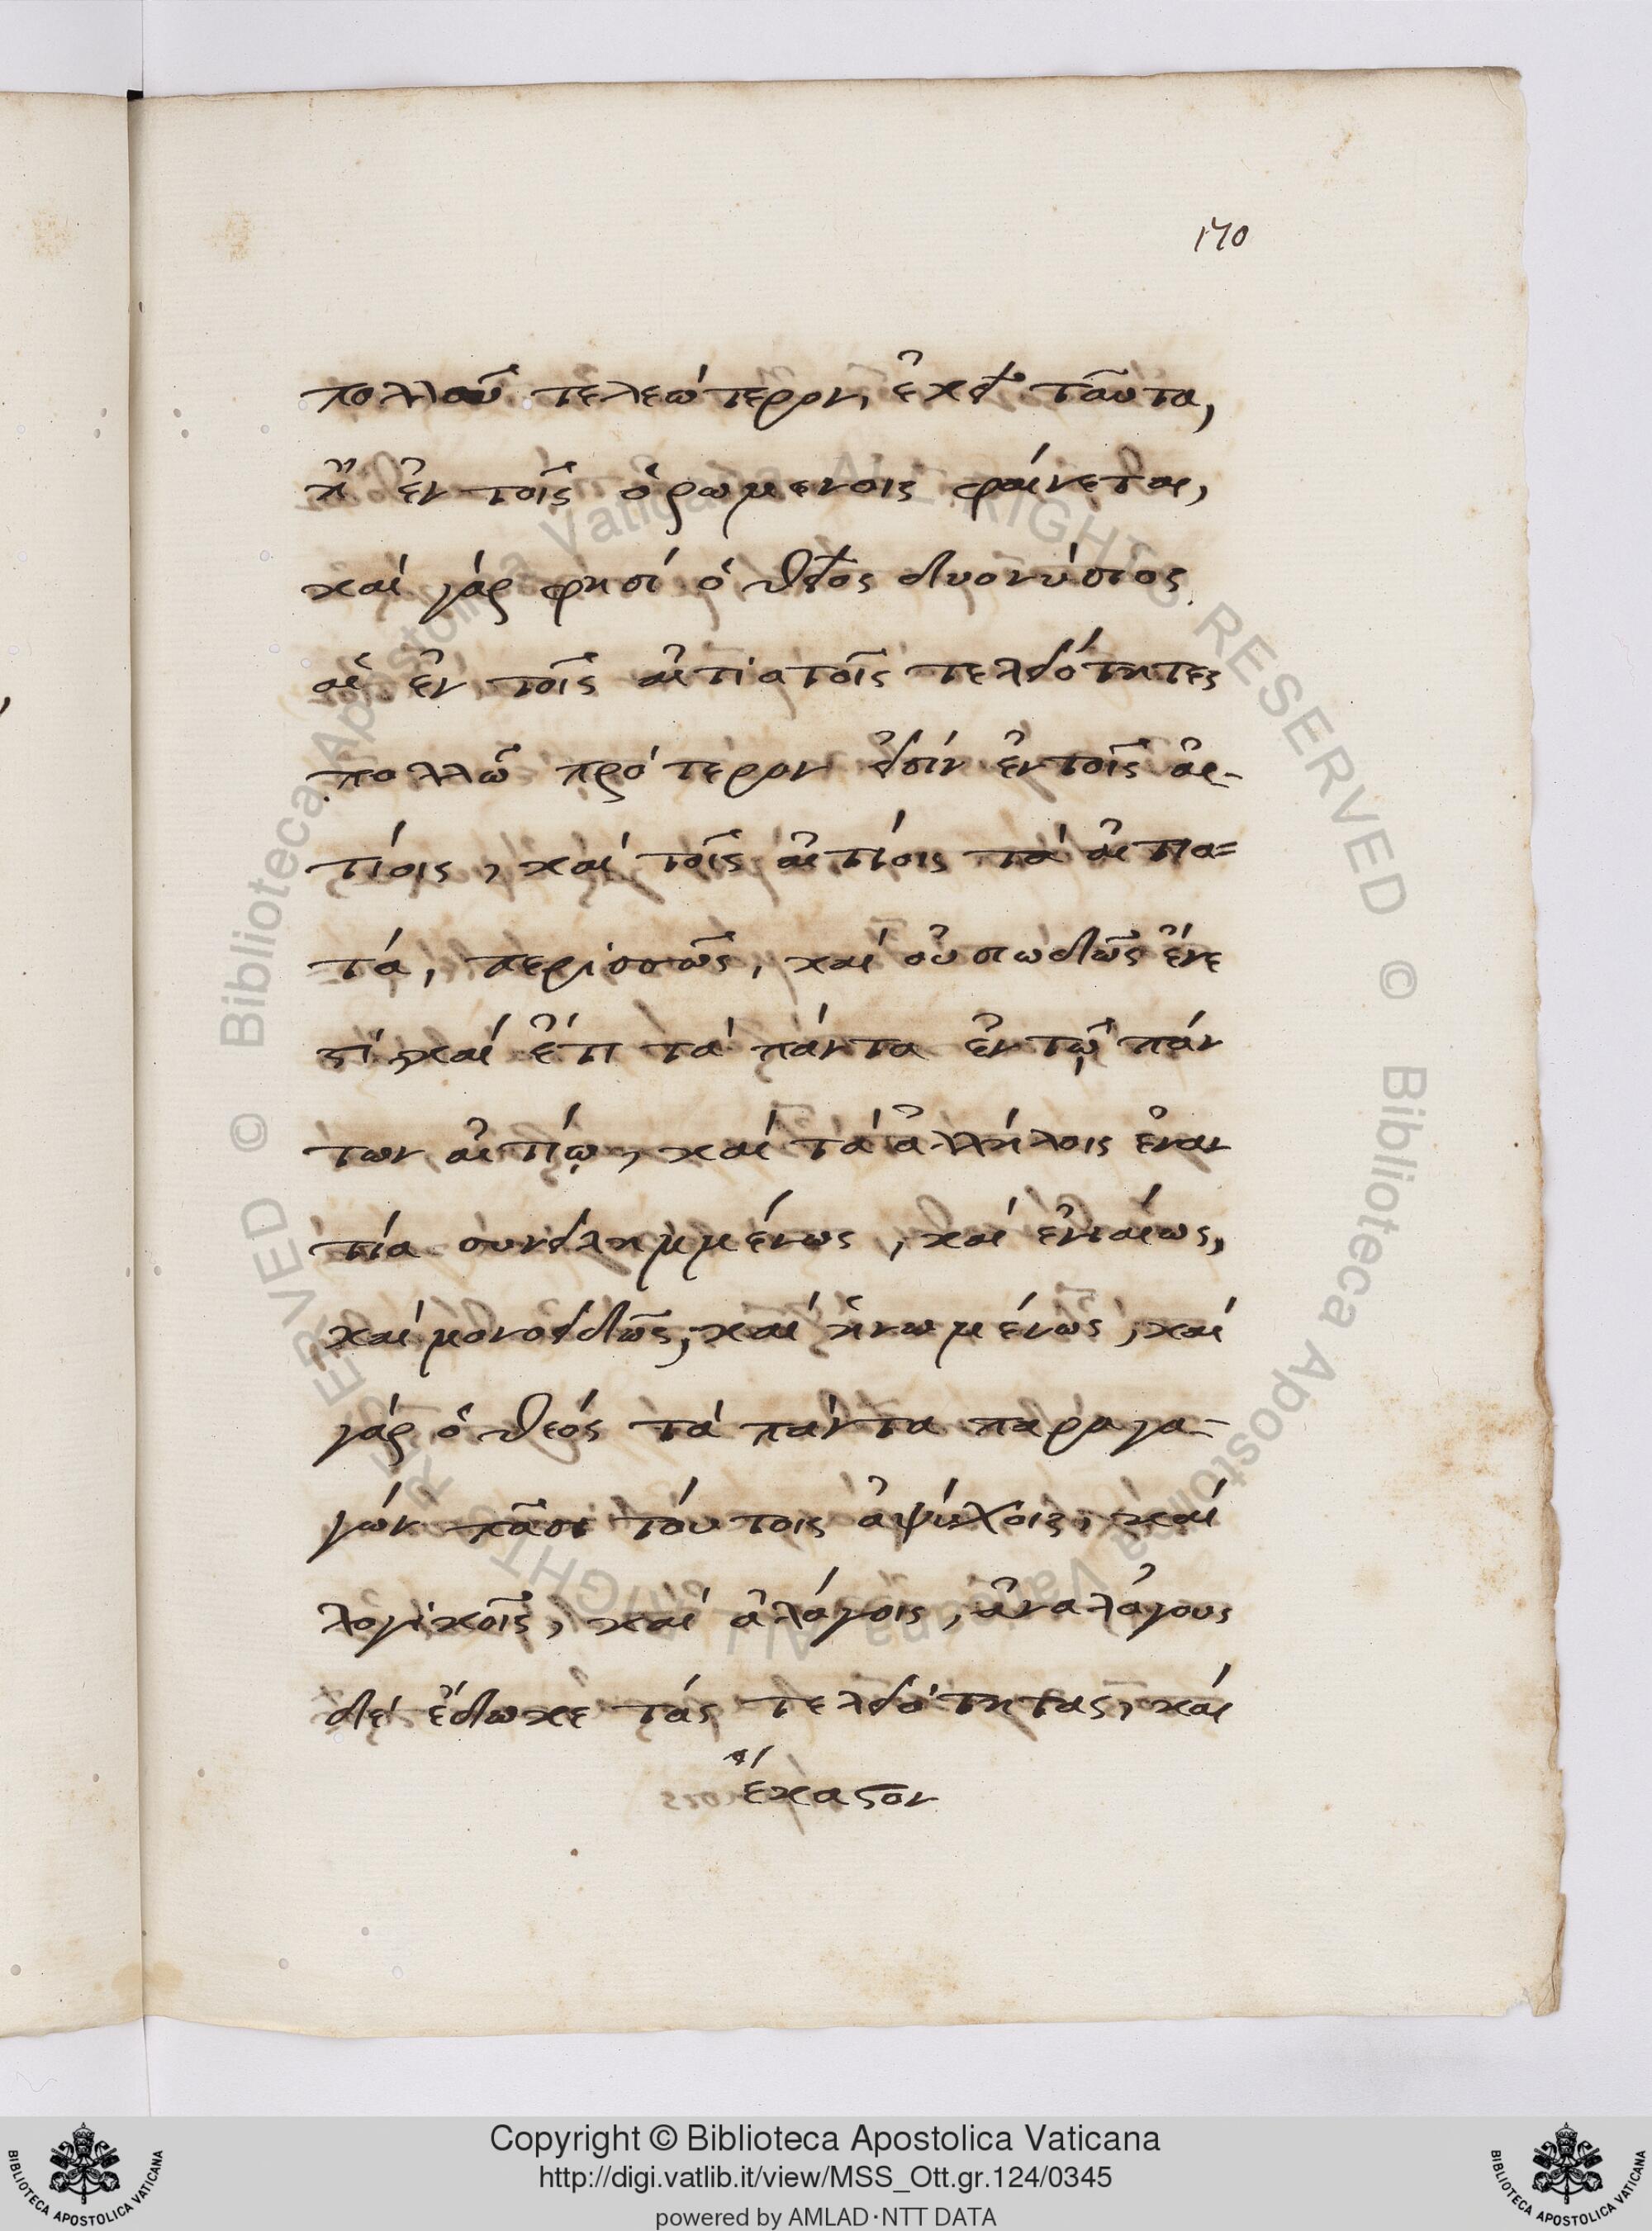 170
πολλοῦ τελεώτερον, ἐκεῖ ταῦτα,
ἢ ἐν τοῖς ὁρωμενοις φαίνεται,
καὶ γὰρ φησὶ ὁ θεῖος διονύσιος
αἱ ἐν τοῖς αἰτιατοῖς τελειότητες
πολλῶ πρότερον εἰσὶν ἐν τοῖς αἰ-
τίοις, καὶ τοῖς αἰτίοις τὰ αἰτια=
τά, περισσῶς, καὶ οὐσιωδῶς ἔνε
στι, καὶ ἔτι τὰ πάντα ἐν τῷ πάν
των αἰτίῳ, καὶ τὰ ἀλλήλοις ἐναν
τία συνειλημμένως, καὶ ἑνιαίως,
καὶ μονοειδῶς, καὶ ἡνωμένως, καὶ
γὰρ ὁ θεός τὰ πάντα παραγα-
γών πᾶσι τούτοις ἀψύχοις, καὶ
λογικοῖς, καὶ ἀλόγοις, ἀναλόγους
δὲ ἔδωκε τάς τελειότητας, καὶ
ἕκαστον
Copyright © Biblioteca Apostolica Vaticana
http://digi.vatlib.it/view/MSS_Ott.gr.124/0345
powered by AMLAD·NTT DATA
BIBLIOTECA APOSTOLICA VATICANA
BIBLIOTECA APOSTOLICA VATICANA